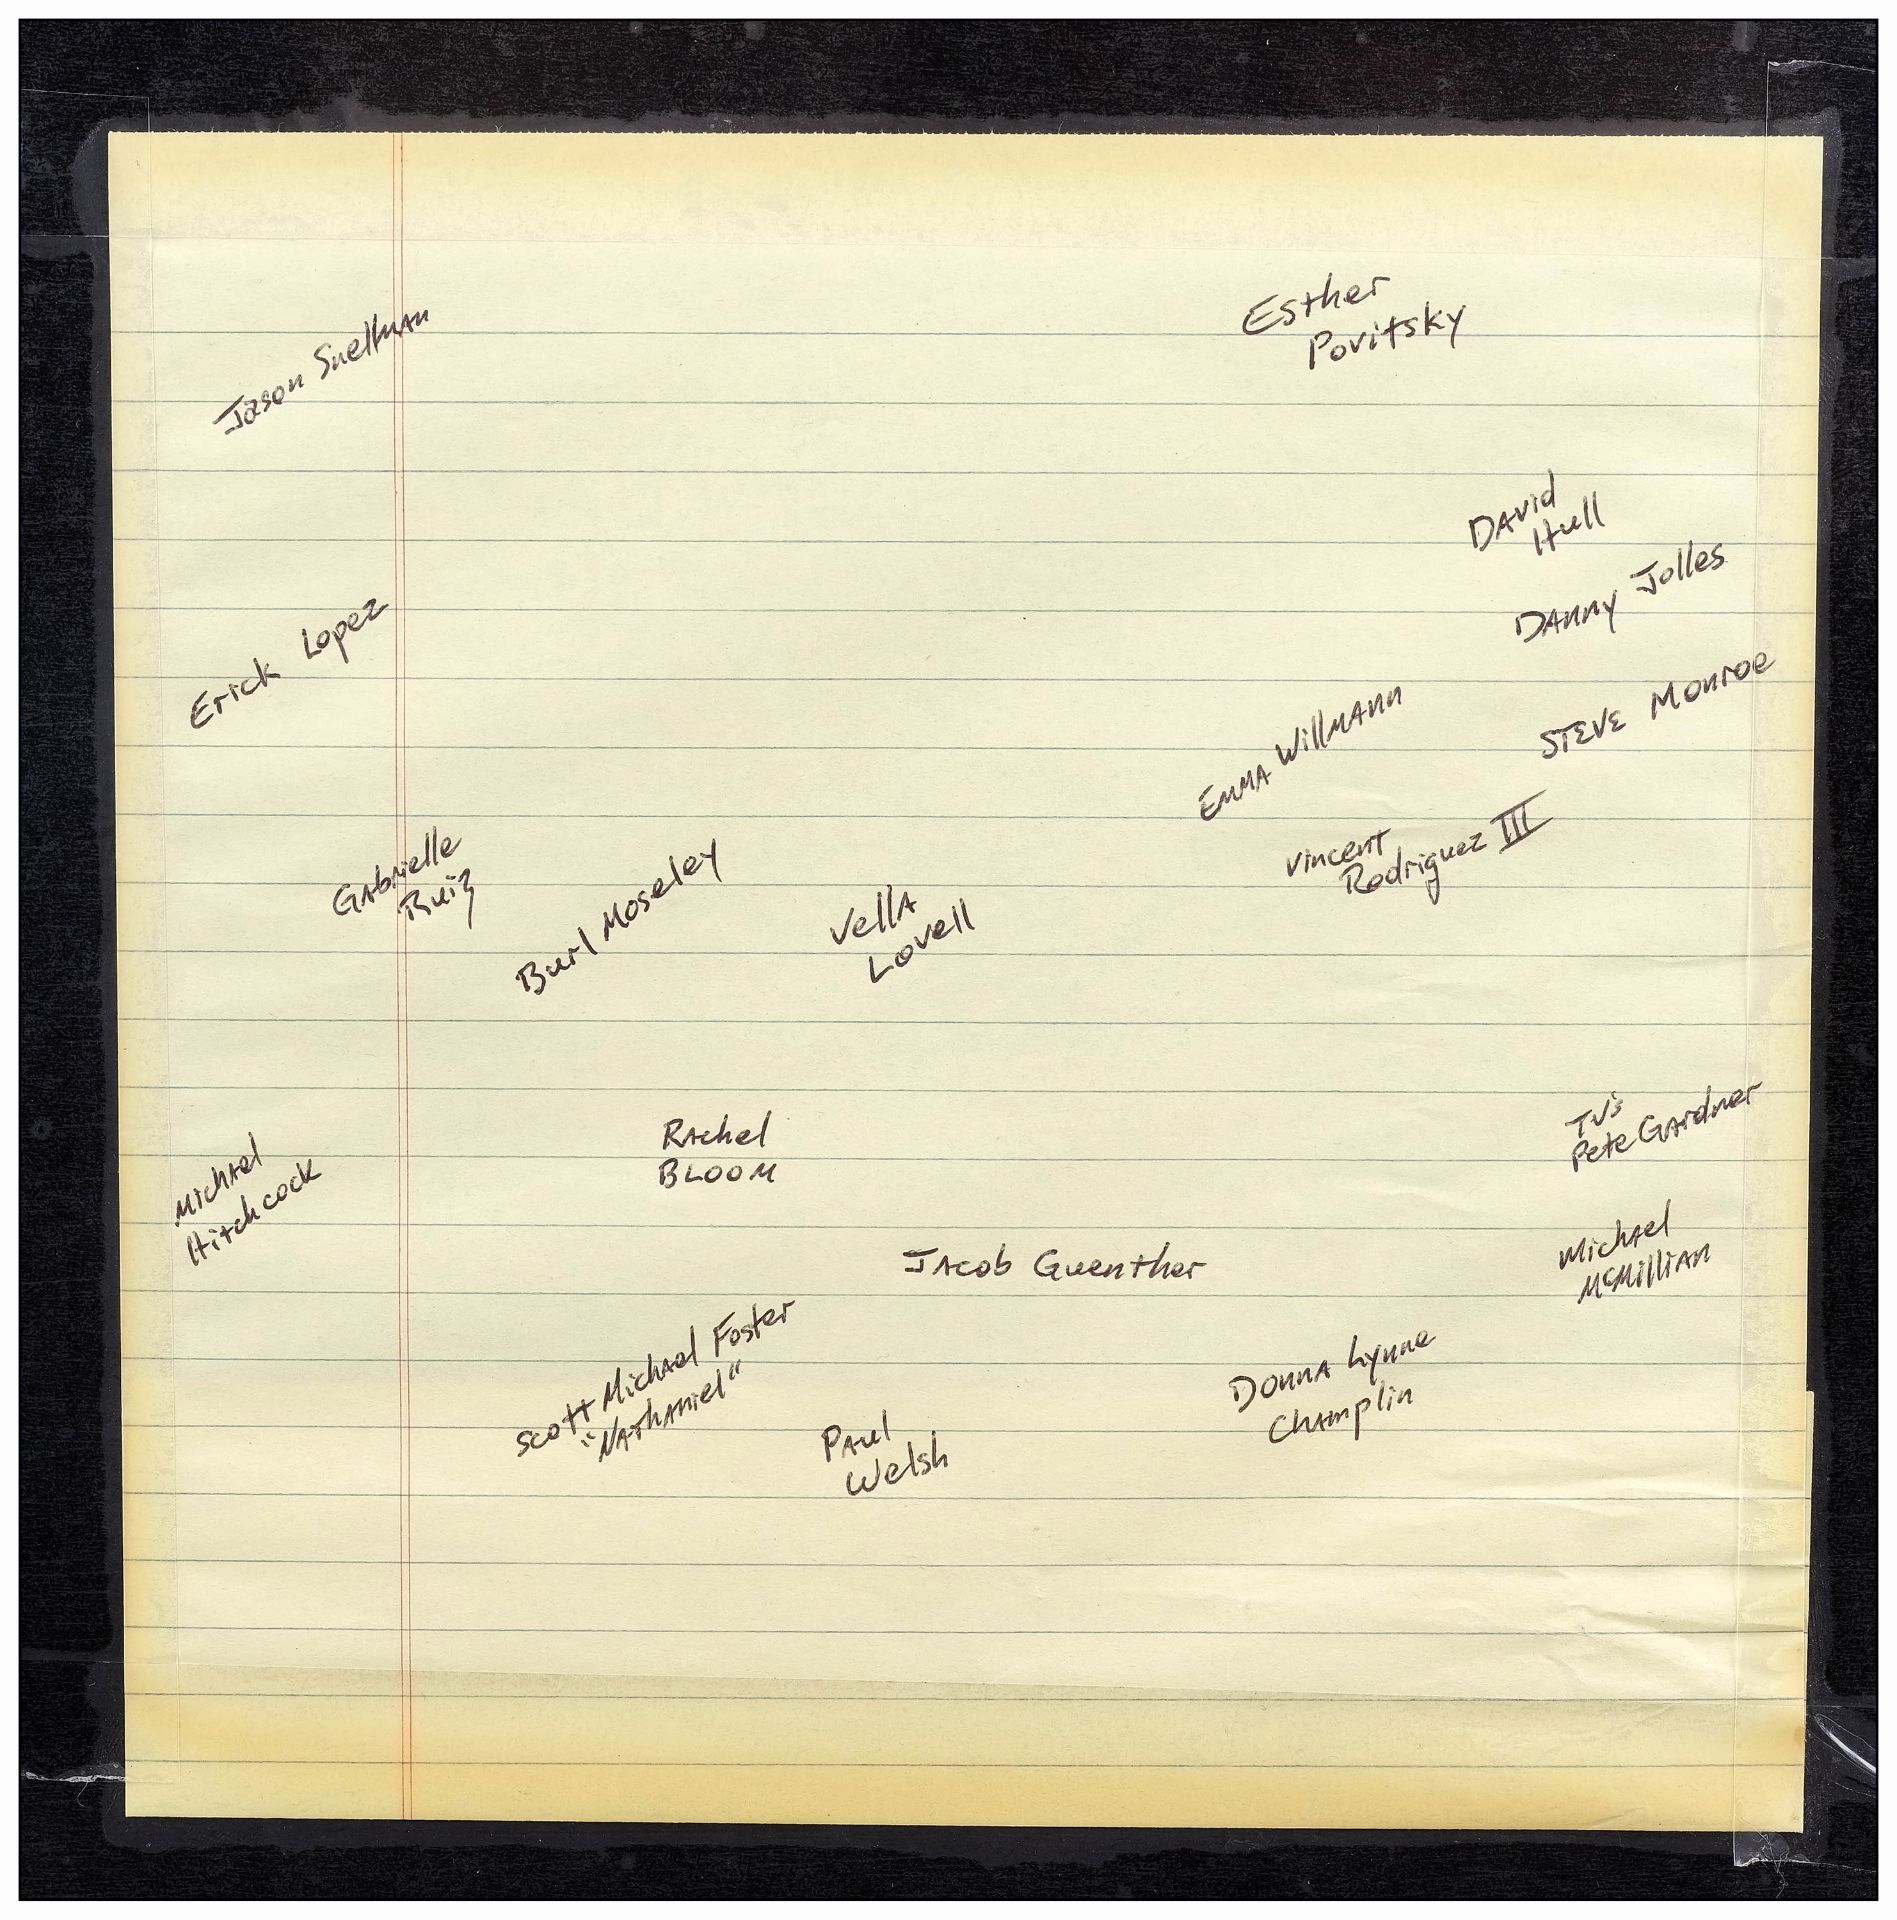 Esther
Povitsky
Jason Snellman
David
Hull
Danny Jolles
Erick Lopez
Steve Monroe
Emma Willmann
Vincent
Rodriguez III
Gabrielle
Ruiz
Burl Moseley
Vella
Lovell
TV's
Pete Gardner
Rachel
BLOOM
Michael
Hitchcock
Michael
McMillian
Jacob Guenther
Scott Michael Foster
"Nathaniel"
Donna Lynne
Champlin
Paul
Welsh